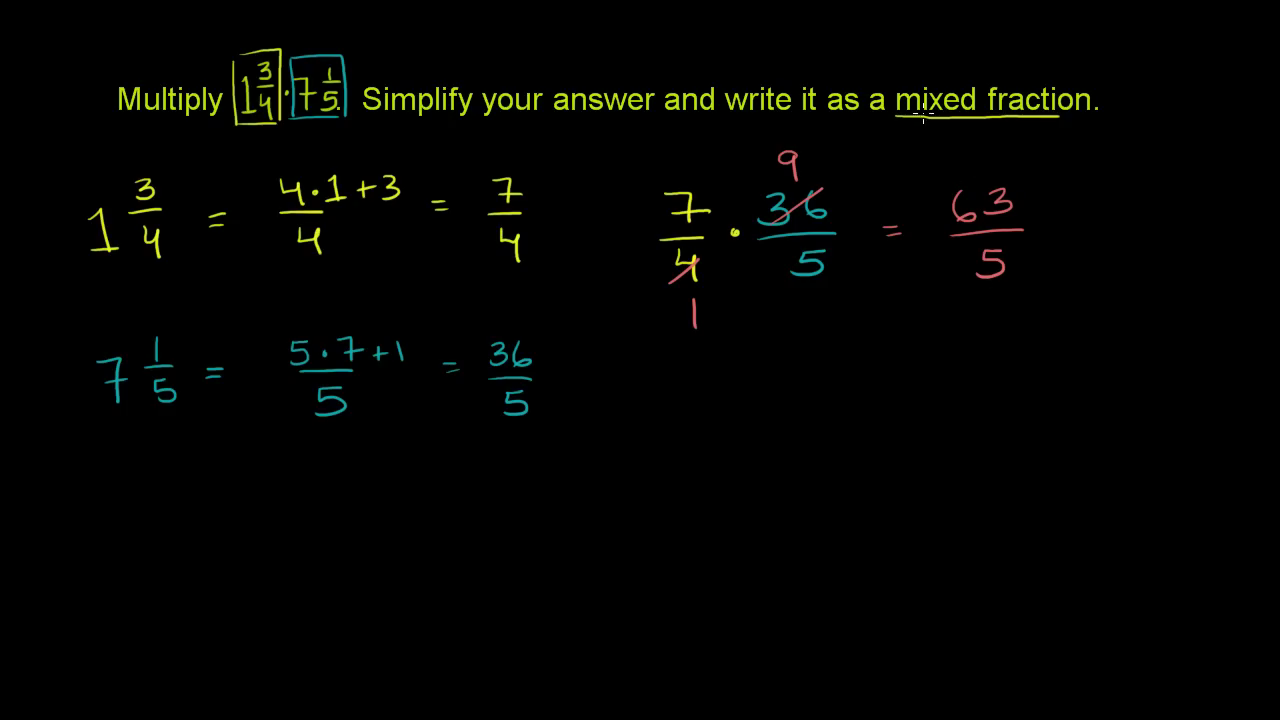 Multiply 1 3/4 · 7 1/5. Simplify your answer and write it as a mixed fraction.
1 3/4 = 4·1+3/4 = 7/4
7/4 · 36/5 = 63/5
9
1
7 1/5 = 5·7+1/5 = 36/5